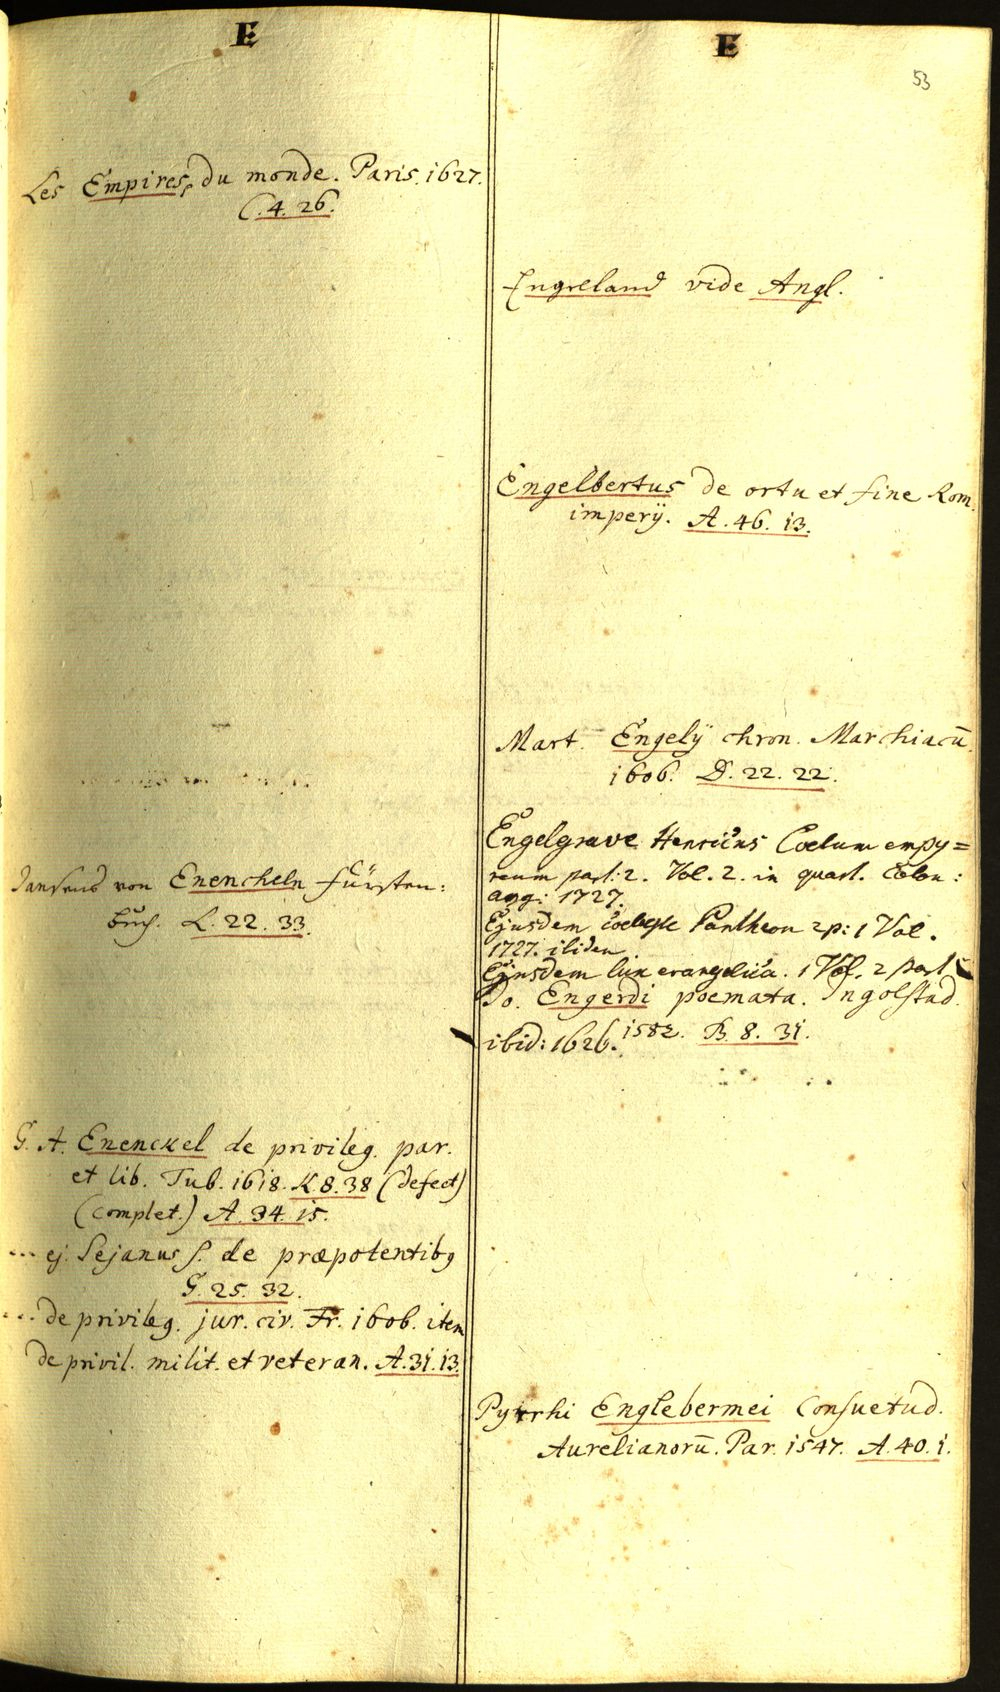 E
Les Empires du monde. Paris. 1627.
C. 4. 26.
Jansens von Enencheln Fürsten:
buch. L. 22. 33.
G. A. Enenckel de privileg. par.
et lib. Tub. 1618. K 8. 38 (defect)
(complet.) A. 34. 15.
... ej. Sejanus s. de præpotentibq
G. 25. 32.
... de privileg. jur. civ. Fr. 1606. item
de privil. milit. et veteran. A. 31. 13.
E
53
Engelland vide Angl.
Engelbertus de ortu et fine Rom.
imperÿ. A. 46. 13.
Mart. Engelÿ chron. Marchiacū
1606. D. 22. 22.
Engelgrave Henricus Coelum empy=
reum part: 2. Vol. 2. in quart. Colon:
agg: 1727.
Ejusdem coeleste Pantheon 2p: 1 Vol.
1727. ibidem
Ejusdem lux evangelica. 1 Vol. 2 part
Jo. Engerdi poemata. Ingolstad.
1582. B. 8. 31.
ibid: 1626.
Pyrrhi Englebermei Consuetud.
Aurelianorū. Par. 1547. A. 40. 1.